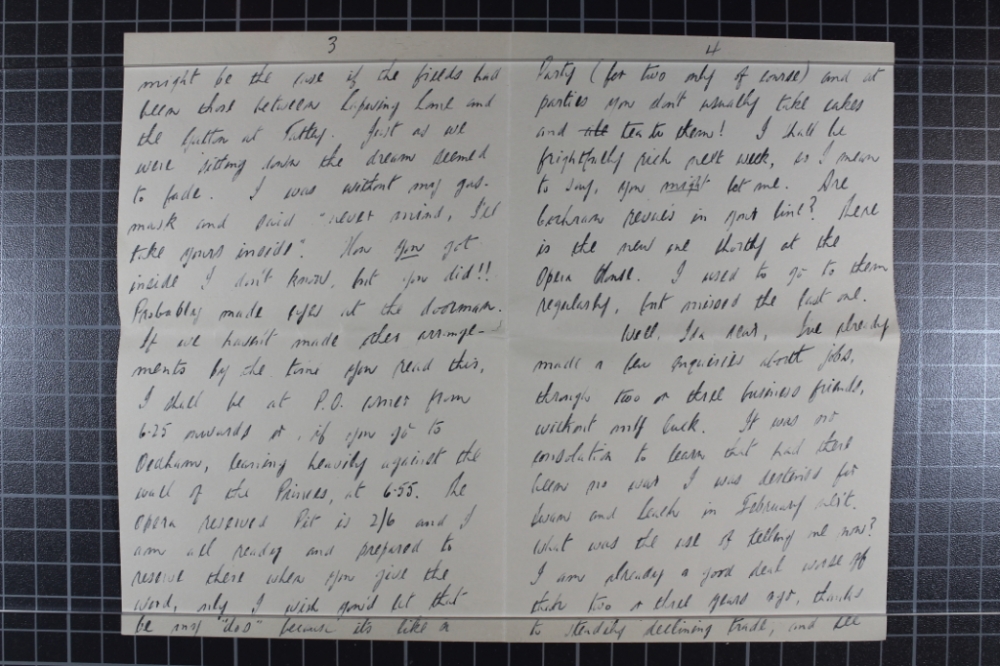 3
might be the case if the fields had
been those between Lapwing Lane and
the Button at Tatty. Just as we
were sitting down the dream seemed
to fade. I was without my gas-
mask and said "never mind, I'll
take yours inside". How you got
inside I don't know, but you did!!
Probably made eyes at the doorman.
If we haven't made other arrange-
ments by the time you read this,
I shall be at P.O. corner from
6-25 onwards or, if you go to
Oldham, leaning heavily against the
wall of the Princes, at 6-55. The
Opera reserved Pit is 2/6 and I
am all ready and prepared to
reserve there when you give the
word, only I wish you'd let that
be my "do" because its like a
4
Party (for two only of course) and at
parties you don't usually take cakes
and tea to them! I shall be
frightfully rich next week, or I mean
to say, you might let me. Are
Cochran revues in your line? There
is the new one shortly at the
Opera House. I used to go to them
regularly, but missed the last one.
Well, Ida dear, I've already
made a few enquiries about jobs,
through two or three business friends,
without much luck. It was no
consolation to learn that had there
been no war I was destined for
and in February next.
What was the use of telling me now?
I am already a good deal worse off
than two or three years ago, thanks
to steadily declining trade, and